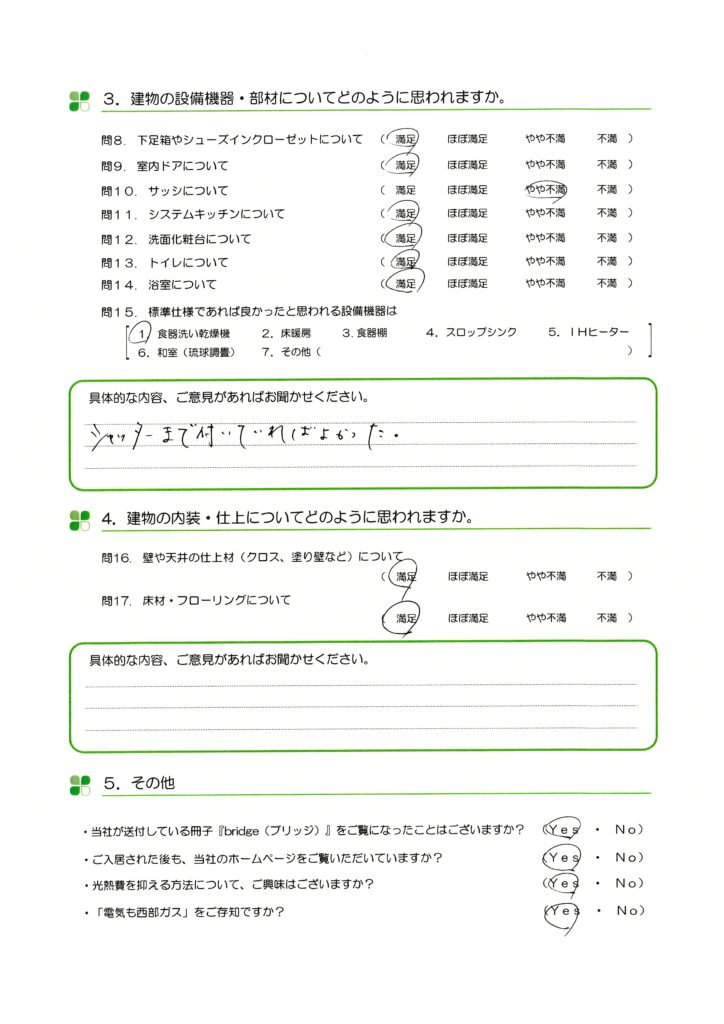 3．建物の設備機器・部材についてどのように思われますか。
問8．下足箱やシューズインクローゼットについて （ 満足 ほぼ満足 やや不満 不満 ）
問9．室内ドアについて （ 満足 ほぼ満足 やや不満 不満 ）
問10．サッシについて （ 満足 ほぼ満足 やや不満 不満 ）
問11．システムキッチンについて （ 満足 ほぼ満足 やや不満 不満 ）
問12．洗面化粧台について （ 満足 ほぼ満足 やや不満 不満 ）
問13．トイレについて （ 満足 ほぼ満足 やや不満 不満 ）
問14．浴室について （ 満足 ほぼ満足 やや不満 不満 ）
問15．標準仕様であれば良かったと思われる設備機器は
1．食器洗い乾燥機 2．床暖房 3．食器棚 4．スロップシンク 5．IHヒーター
6．和室（琉球調畳） 7．その他（ ）
具体的な内容、ご意見があればお聞かせください。
シャッターまで付いていればよかった。
4．建物の内装・仕上についてどのように思われますか。
問16．壁や天井の仕上材（クロス、塗り壁など）について
（ 満足 ほぼ満足 やや不満 不満 ）
問17．床材・フローリングについて
（ 満足 ほぼ満足 やや不満 不満 ）
具体的な内容、ご意見があればお聞かせください。
5．その他
・当社が送付している冊子『bridge（ブリッジ）』をご覧になったことはございますか？ （Yes ・ No）
・ご入居された後も、当社のホームページをご覧いただいていますか？ （Yes ・ No）
・光熱費を抑える方法について、ご興味はございますか？ （Yes ・ No）
・「電気も西部ガス」をご存知ですか？ （Yes ・ No）